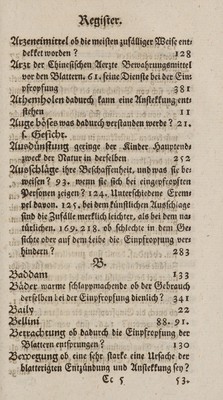 Register.
Arzeneimittel ob die meisten zufälliger Weise ent-
dekket worden? 128
Arzt der Chinesischen Aerzte Bewahrungsmittel
vor den Blattern. 61. seine Dienste bei der Ein-
pfropfung 381
Athemholen dadurch kann eine Ansteckung ent-
stehen 11
Auge böses was dadurch verstanden werde? 21.
s. Gesicht.
Ausdünstung geringe der Kinder Hauptend-
zweck der Natur in derselben 252
Ausschläge ihre Beschaffenheit, und was sie be-
weisen? 93. wenn sie sich bei eingepfropften
Personen zeigen? 124. Unterschiedene Exem-
pel davon. 125. bei dem künstlichen Ausschlage
sind die Zufälle merklich leichter, als bei dem na-
türlichen. 169. 218. ob schlechte in dem Ge-
sichte oder auf dem Leibe die Einpfropfung ver-
hindern? 283
B.
Baddam 133
Bäder warme schlappmachende ob der Gebrauch
derselben bei der Einpfropfung dienlich? 341
Baily 22
Bellini 88. 91.
Betrachtung ob dadurch die Einpfropfung der
Blattern entsprungen? 130
Bewegung ob eine sehr starke eine Ursache der
blatterigten Entzündung und Ansteckung sey?
Cc 5 53.